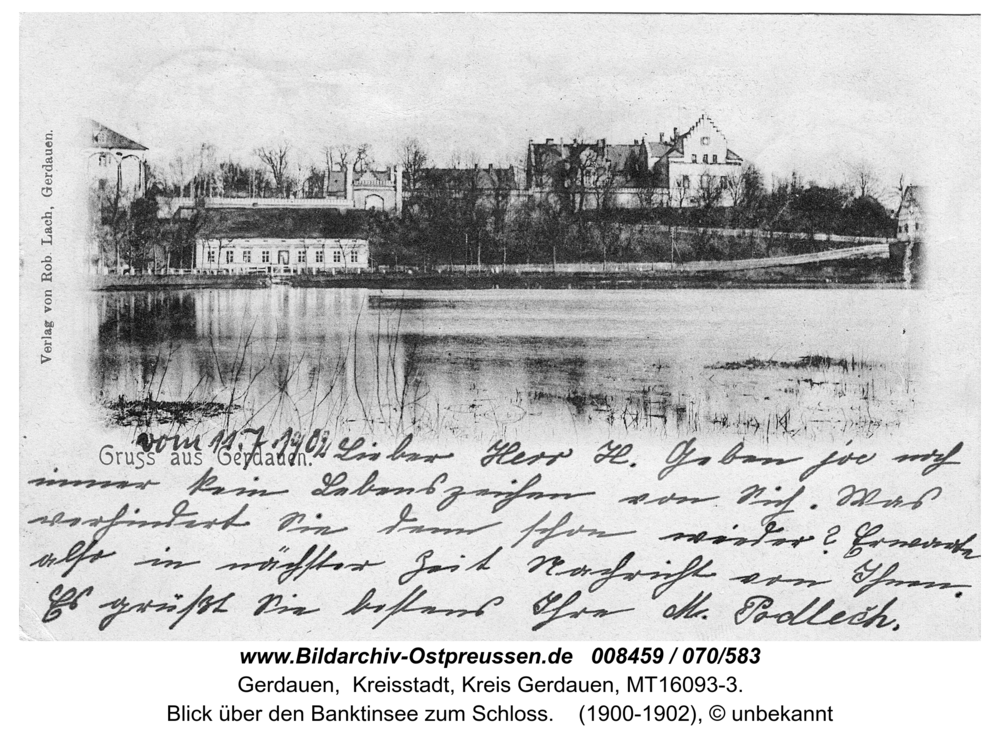 Verlag von Rob. Lach, Gerdauen.
Gruss aus Gerdauen.
vom 11.7.1902 Lieber Herr H. Geben ja noch
immer kein Lebenszeichen von Sich. Was
verhindert Sie denn schon wieder? Erwarte
also in nächster Zeit Nachricht von Ihnen.
Es grüßt Sie bestens Ihre M. Podlech.
www.Bildarchiv-Ostpreussen.de 008459 / 070/583
Gerdauen, Kreisstadt, Kreis Gerdauen, MT16093-3.
Blick über den Banktinsee zum Schloss. (1900-1902), © unbekannt